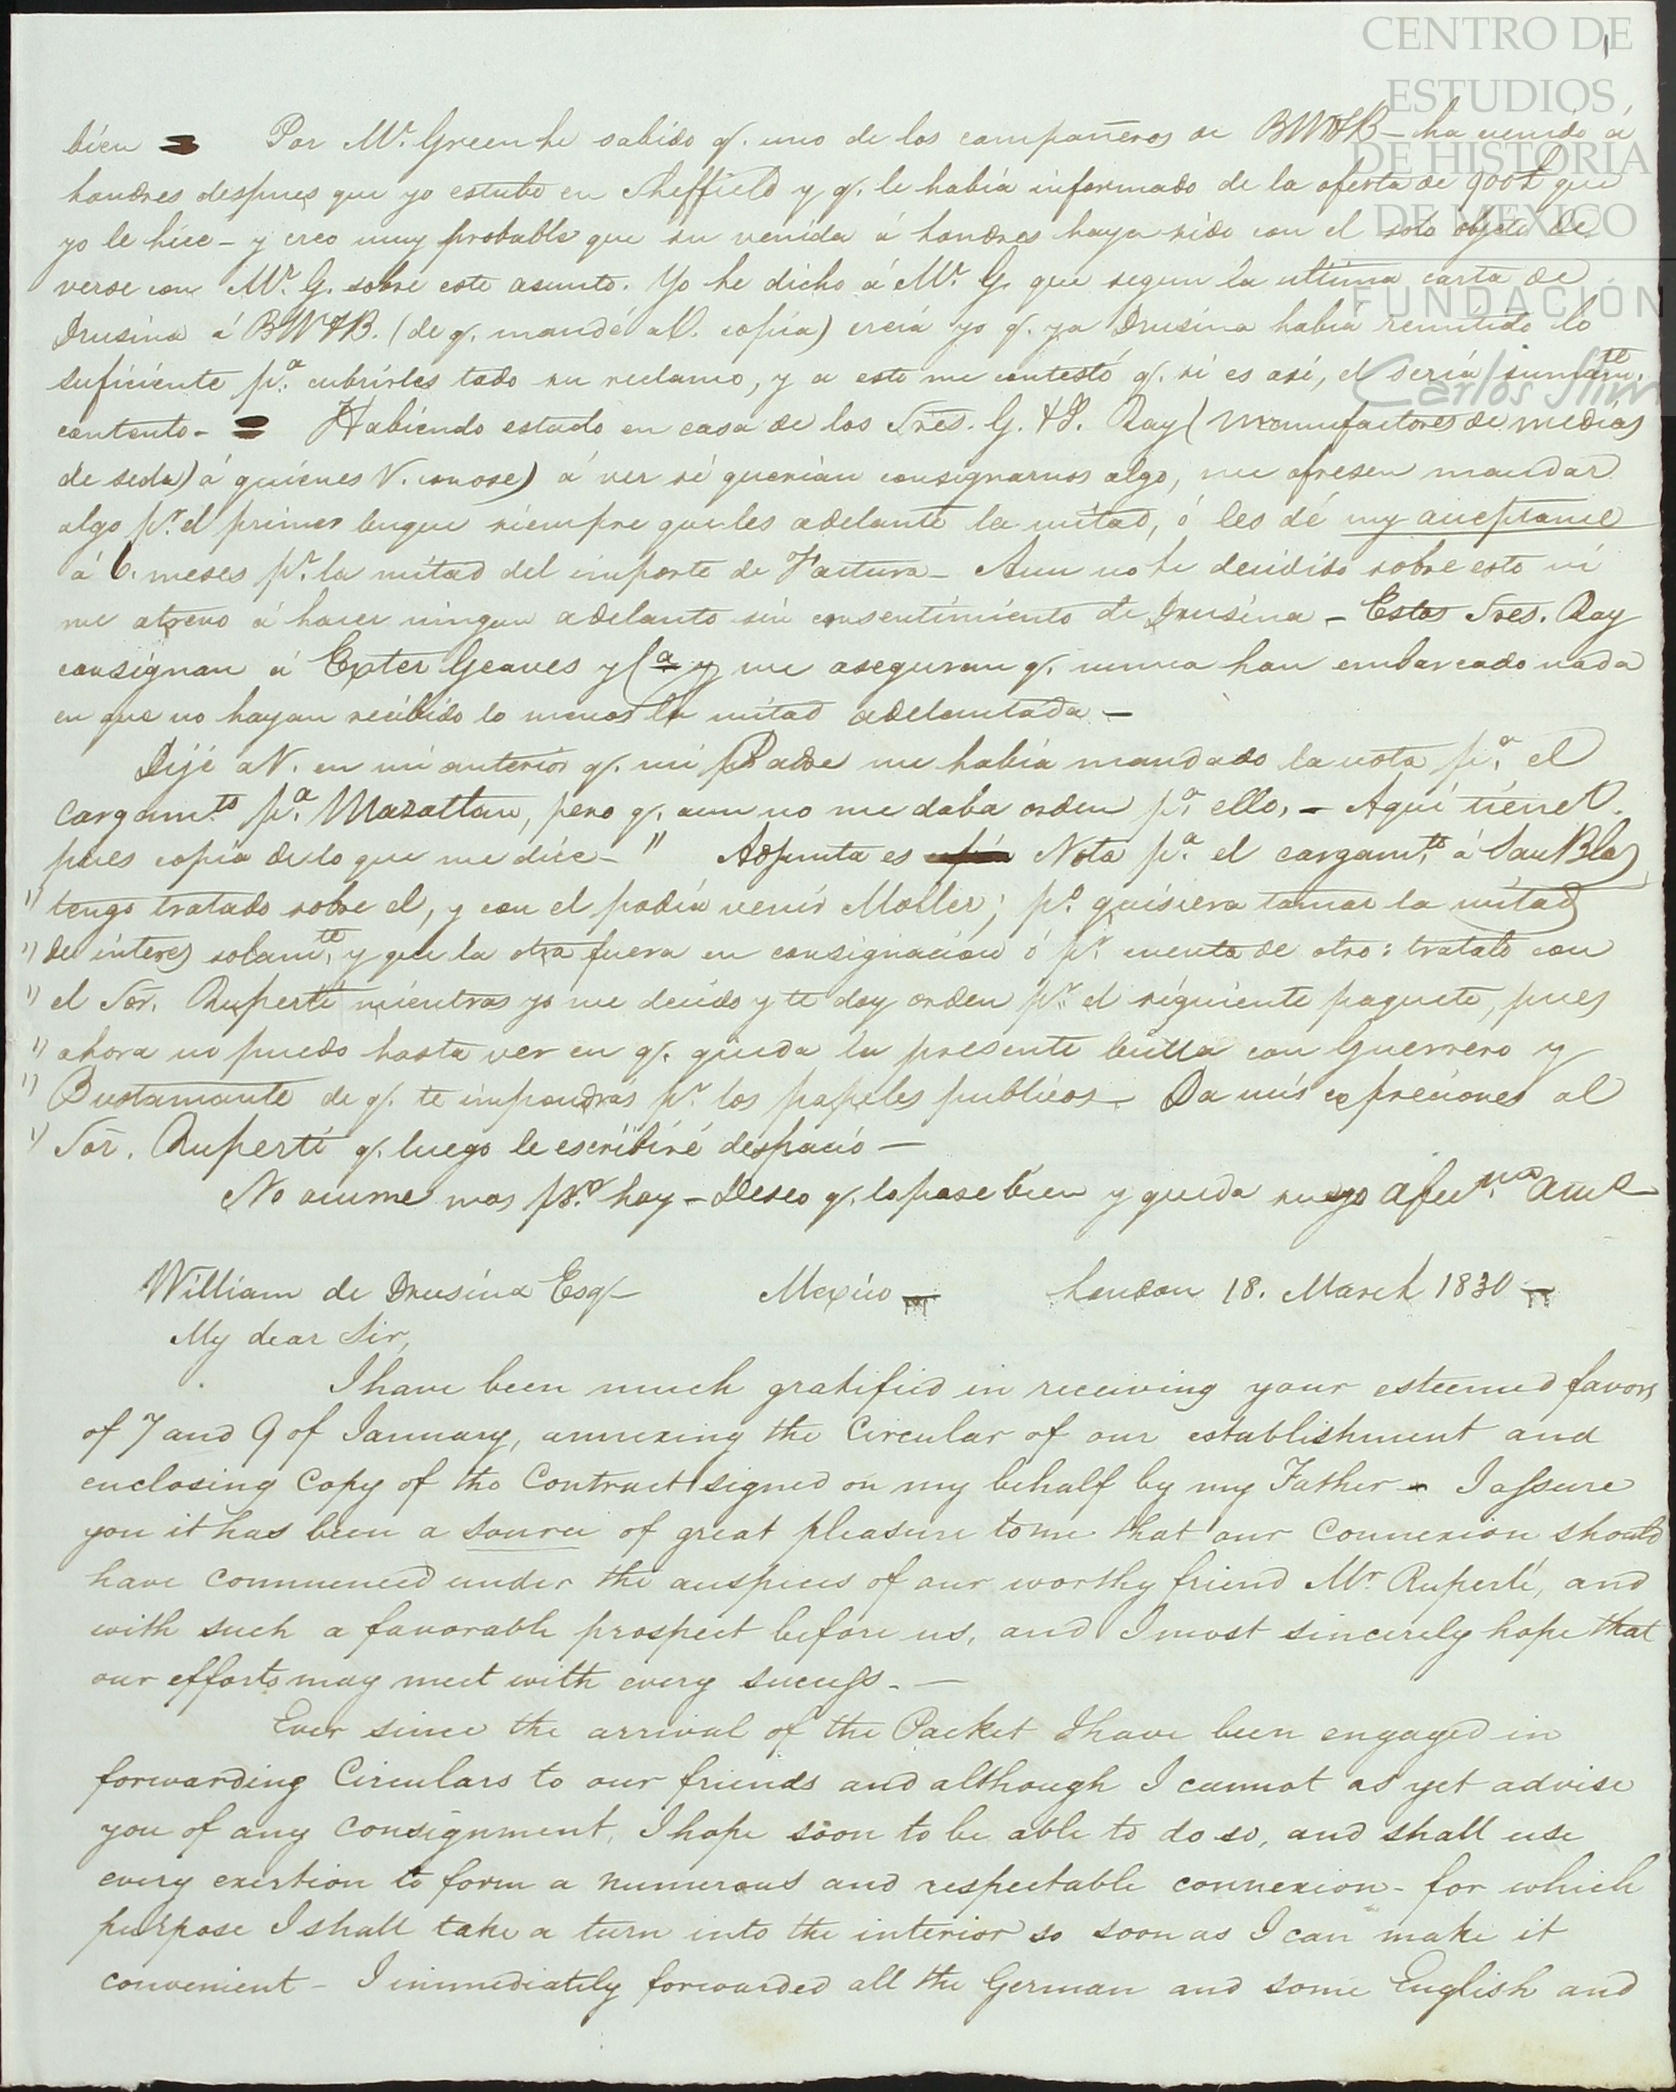 CENTRO DE
ESTUDIOS
DE HISTORIA
DE MEXICO
FUNDACIÓN
Carlos Slim
1
bien = Por Mr. Green he sabido q. uno de los compañeros de BW&B - ha venido á
Londres despues que yo estube en Sheffield y q. le había informado de la oferta de 900£ que
yo le hice - y creo muy probable que su venida á Londres haya sido con el solo objeto de
verse con Mr. G. sobre este asunto. Yo he dicho á Mr. G. que segun la ultima carta de
Drusina á BW&B. (de q. mandé a V. copia) creía yo q. ya Drusina había remitido lo
suficiente pa. cubrirles todo su reclamo, y a esto me contestó q. si es asi, el sería sumamte.
contento - = Habiendo estado en casa de los Sres. G. & S. Ray (Manufactores de medias
de seda) á quienes V. conose) á ver si querian consignarnos algo, me ofresen mandar
algo pr. el primer buque siempre que les adelante la mitad, ó les dé my acceptance
á 6. meses pr. la mitad del importe de Factura - Aun no he decidido sobre esto ni
me atrevo á hacer ningun adelanto sin consentimiento de Drusina - Estos Sres. Ray
consignan á Exter Geaves y Ca y me aseguran q. nunca han embarcado nada
en que no hayan recibido lo menos la mitad adelantada -
Dije a V. en mi anterior q. mi Padre me había mandado la nota pa. el
Cargamto. pa. Mazatlan, pero q. aun no me daba orden pa. ello. - Aqui tiene V.
pues copia de lo que me dice - " Adjunta es Nota pa. el cargamto. á San Blas
" tengo tratado sobre el, y con el podia venir Moller; po. quisiera tomar la mitad
" de interes solamte. y que la otra fuera en consignacion ó pr. cuenta de otro: tratalo con
" el Sor. Ruperti mientras yo me decido y te doy orden pr. el siguiente paquete, pues
" ahora no puedo hasta ver en q. queda la presente bulla con Guerrero y
" Bustamante de q. te impondrás pr. los papeles publicos - Da mis expreciones al
" Sor. Ruperti q. luego le escribiré despacio -
No ocurre mas pr. hoy - Deseo q. lo pase bien y queda suyo afmo. amo
William de Drusina Esq. Mexico London 18. March 1830
My dear Sir,
I have been much gratified in receiving your esteemed favors
of 7 and 9 of January, annexing the Circular of our establishment and
enclosing Copy of the Contract signed on my behalf by my Father - I assure
you it has been a source of great pleasure to me that our Connexion should
have commenced under the auspices of our worthy friend Mr Ruperti, and
with such a favorable prospect before us, and I most sincerely hope that
our efforts may meet with every success. -
Ever since the arrival of the Packet I have been engaged in
forwarding Circulars to our friends and although I cannot as yet advise
you of any Consignment, I hope soon to be able to do so, and shall use
every exertion to form a numerous and respectable connexion - for which
purpose I shall take a turn into the interior so soon as I can make it
convenient - I immediately forwarded all the German and some English and